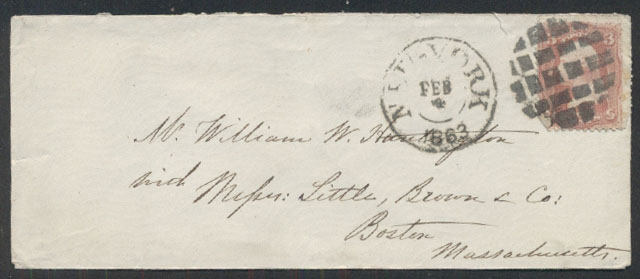 NEW YORK
FEB
4
1863
3 3
Mr. William W. Harrington
with Messrs: Little, Brown & Co:
Boston
Massachusetts.